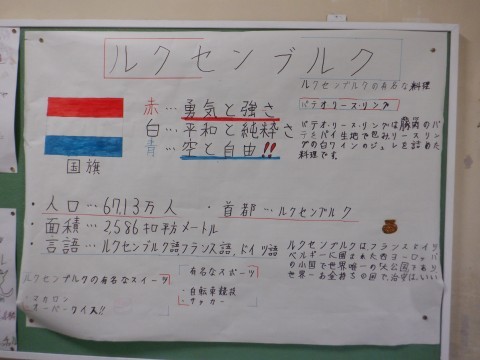 ルクセンブルク
ルクセンブルクの有名な料理
赤…勇気と強さ
白…平和と純粋さ
青…空と自由!!
国旗
パテオ・リース・リング
パテオ・リース・リングは豚肉のパ
テをパイ生地で包みリースリン
グの白ワインのジュレを詰めた
料理です。
・人口…67.13万人
・首都…ルクセンブルク
・面積…2,586キロ平方メートル
・言語…ルクセンブルク語フランス語、ドイツ語
ルクセンブルクの有名なスイーツ
・マカロン
・オーバーワイス!!
有名なスポーツ
・自転車競技
・サッカー
ルクセンブルクはフランスドイツ
ベルギーに囲まれた西ヨーロッパ
の小国で世界唯一の大公国であり
世界一お金持ちの国で治安はいい